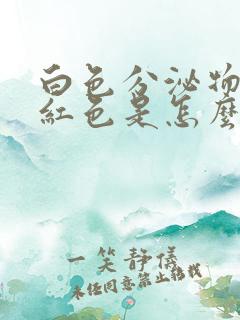 白色分泌物
紅色是怎麼
一笑靜儀
未经同意禁止转载